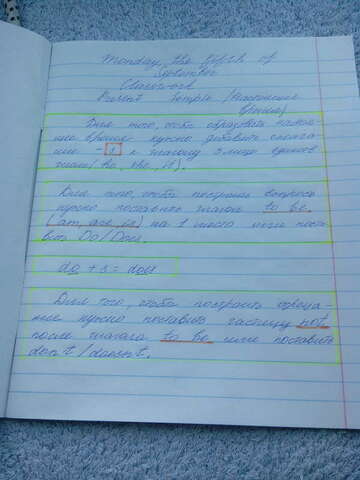 Monday, the fifth of
September
Classwork
Present Simple (Настоящее
время)
Для того, чтобы образовать настоя-
щее время нужно добавить оконча-
ние -s к глаголу 3 лица единств
числа (he, she, it).
Для того, чтобы построить вопрос
нужно поставить глагол to be
(am, are, is) на 1 место или поста-
вить Do/Does.
do + s = does
Для того, чтобы построить отрица-
ние нужно поставить частицу not
после глагола to be или поставить
don't/doesn't.